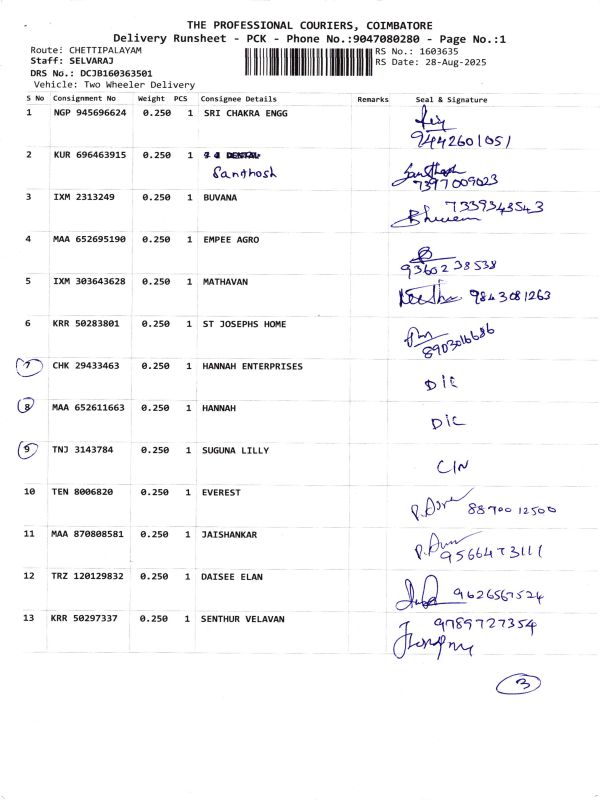 THE PROFESSIONAL COURIERS, COIMBATORE
Delivery Runsheet - PCK - Phone No.:9047080280 - Page No.:1
Route: CHETTIPALAYAM RS No.: 1603635
Staff: SELVARAJ RS Date: 28-Aug-2025
DRS No.: DCJB160363501
Vehicle: Two Wheeler Delivery
S No Consignment No Weight PCS Consignee Details Remarks Seal & Signature
1 NGP 945696624 0.250 1 SRI CHAKRA ENGG
9442601051
2 KUR 696463915 0.250 1 DENTAL
Santhosh Santhosh
7397009023
3 IXM 2313249 0.250 1 BUVANA 7339343543
4 MAA 652695190 0.250 1 EMPEE AGRO
9360238538
5 IXM 303643628 0.250 1 MATHAVAN 9843081263
6 KRR 50283801 0.250 1 ST JOSEPHS HOME
8903016686
7 CHK 29433463 0.250 1 HANNAH ENTERPRISES
D/C
8 MAA 652611663 0.250 1 HANNAH
D/C
9 TNJ 3143784 0.250 1 SUGUNA LILLY
C/N
10 TEN 8006820 0.250 1 EVEREST
8870012500
11 MAA 870808581 0.250 1 JAISHANKAR
9566473111
12 TRZ 120129832 0.250 1 DAISEE ELAN
9626567524
13 KRR 50297337 0.250 1 SENTHUR VELAVAN 9789727354
3